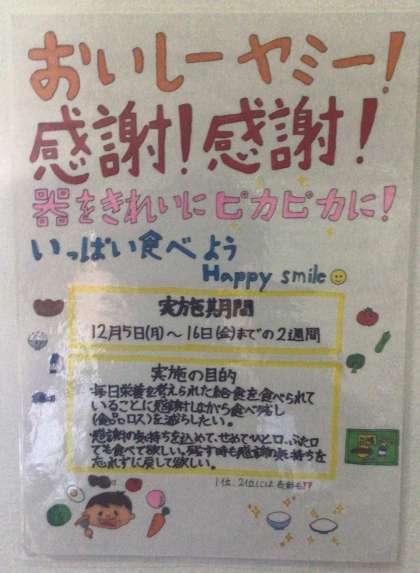 おいしーヤミー!
感謝!感謝!
器をきれいにピカピカに!
いっぱい食べよう
Happy smile
実施期間
12月5日(月)～16日(金)までの2週間
実施の目的
毎日栄養を考えられた給食を食べられて
いることに感謝しながら食べ残し
(食品ロス)を減らしたい。
感謝の気持ちを込めて、せめてひと口、ふた口
でも食べて欲しい。残す時も感謝の気持ちを
忘れずに戻して欲しい。
1位、2位には